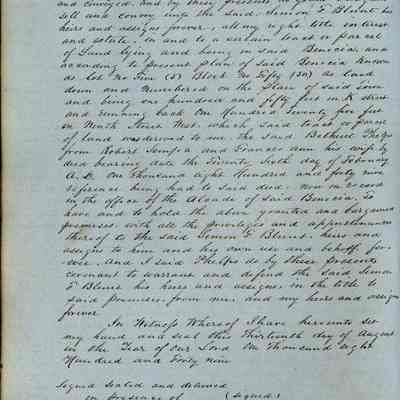 and conveyed and by these presents do grant bargain
sell and convey unto the said Simon E Blunt his
heirs and assigns forever, all my right, title, interest
and estate, in and to a certain tract or parcel
of Land lying and being in said Benicia, and
according to present plan of said Benicia known
as lot No Five (5) Block No Fifty (50) as laid
down and Numbered on the Plan of said Town
and being one hundred and fifty feet on K street
and running back One Hundred Twenty five feet
on Ninth Street West, which said tract or parcel
of land was to me, the said Bethuel Phelps
from Robert Semple and Frances Ann his wife by
deed bearing date the Twenty Sixth day of February
A.D. One Thousand eight Hundred and forty nine
reference being had to said deed, now on record
in the office of the Alcade of said Benicia, To
have and to hold the above granted and bargained
premises, with all the privileges and appurtenances
thereof to the said Simon E Blunt, heirs and
assigns to him and his own use and behoff, for-
ever. And I said Phelps do by these presents
covenant to warrant and defend the said Simon
E Blunt his heirs and assigns in the title to
said premises, from me, and my heirs and assigns
forever
In Witness Whereof I have hereunto set
my hand and seal this Thirteenth day of August
in the Year of our Lord One thousand eight
Hundred and Forty nine
Signed Sealed and delivered
in presence of (signed)